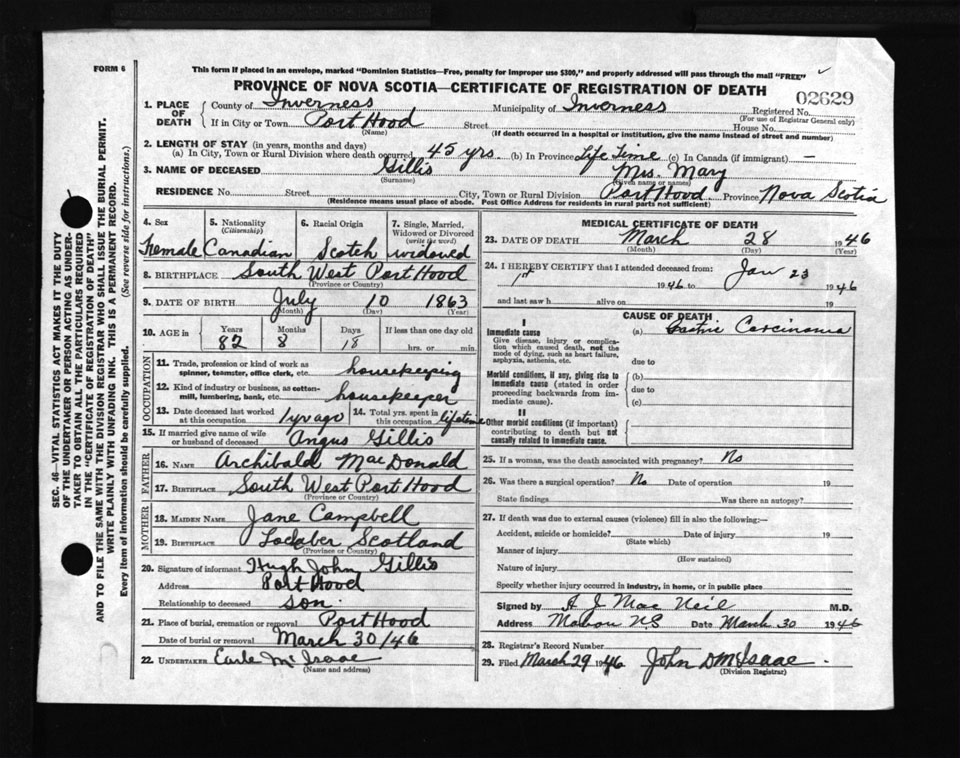 FORM 6
This form if placed in an envelope, marked "Dominion Statistics—Free, penalty for improper use $300," and properly addressed will pass through the mail "FREE"
PROVINCE OF NOVA SCOTIA—CERTIFICATE OF REGISTRATION OF DEATH
02629
1. PLACE OF DEATH
County of Inverness Municipality of Inverness Registered No.
(For use of Registrar General only)
If in City or Town Port Hood Street House No.
(Name) (If death occurred in a hospital or institution, give the name instead of street and number)
2. LENGTH OF STAY (in years, months and days)
(a) In City, Town or Rural Division where death occurred 45 yrs. (b) In Province Life Time (c) In Canada (if immigrant) —
3. NAME OF DECEASED Gillis Mrs. Mary
(Surname) (Given name or names)
RESIDENCE No. Street City, Town or Rural Division Port Hood Province Nova Scotia
(Residence means usual place of abode. Post Office Address for residents in rural parts not sufficient)
4. Sex Female
5. Nationality (Citizenship) Canadian
6. Racial Origin Scotch
7. Single, Married, Widowed or Divorced (write the word) widowed
8. BIRTHPLACE South West Port Hood
(Province or Country)
9. DATE OF BIRTH July 10 1863
(Month) (Day) (Year)
10. AGE in Years Months Days If less than one day old
82 8 18 hrs. or min.
OCCUPATION
11. Trade, profession or kind of work as spinner, teamster, office clerk, etc. housekeeping
12. Kind of industry or business, as cotton-mill, lumbering, bank, etc. housekeeper
13. Date deceased last worked at this occupation 1 yr ago
14. Total yrs. spent in this occupation lifetime
15. If married give name of wife or husband of deceased Angus Gillis
FATHER
16. NAME Archibald MacDonald
17. BIRTHPLACE South West Port Hood
(Province or Country)
MOTHER
18. MAIDEN NAME Jane Campbell
19. BIRTHPLACE Locaber Scotland
(Province or Country)
20. Signature of informant Hugh John Gillis
Address Port Hood
Relationship to deceased son
21. Place of burial, cremation or removal Port Hood
Date of burial or removal March 30/46
22. UNDERTAKER Earle McIsaac
(Name and address)
MEDICAL CERTIFICATE OF DEATH
23. DATE OF DEATH March 28 1946
(Month) (Day) (Year)
24. I HEREBY CERTIFY that I attended deceased from:
1st 1946 to Jan 23 1946
and last saw h alive on 19
CAUSE OF DEATH
I
Immediate cause (a) Gastric Carcinoma
Give disease, injury or complication which caused death, not the mode of dying, such as heart failure, asphyxia, asthenia, etc.
due to
Morbid conditions, if any, giving rise to immediate cause (stated in order proceeding backwards from immediate cause).
(b)
due to
(c)
II
Other morbid conditions (if important) contributing to death but not causally related to immediate cause.
25. If a woman, was the death associated with pregnancy? No
26. Was there a surgical operation? No Date of operation 19
State findings Was there an autopsy?
27. If death was due to external causes (violence) fill in also the following:—
Accident, suicide or homicide? Date of injury 19
(State which)
Manner of injury
(How sustained)
Nature of injury
Specify whether injury occurred in industry, in home, or in public place
Signed by A J MacNeil M.D.
Address Mabou NS Date March 30 1946
28. Registrar's Record Number
29. Filed March 29 1946 John D McIsaac
(Division Registrar)
SEC. 46—VITAL STATISTICS ACT MAKES IT THE DUTY
OF THE UNDERTAKER OR PERSON ACTING AS UNDER-
TAKER TO OBTAIN ALL THE PARTICULARS REQUIRED
IN THE "CERTIFICATE OF REGISTRATION OF DEATH"
AND TO FILE THE SAME WITH THE DIVISION REGISTRAR WHO SHALL ISSUE THE BURIAL PERMIT.
WRITE PLAINLY WITH UNFADING INK. THIS IS A PERMANENT RECORD.
Every item of information should be carefully supplied. (See reverse side for instructions.)